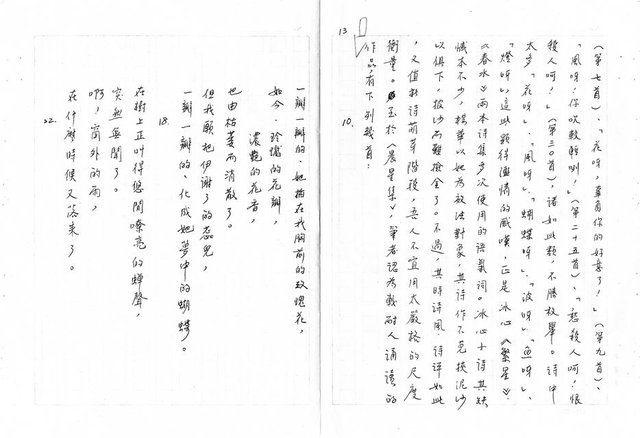 13
(第七首)、「花呀,辜負你的好意了!」(第九首)、
「風呀!你吹數輕唎!」(第二十五首)、「愁殺人呵!恨
殺人呵!」(第三〇首),諸如此類,不勝枚舉。詩中
太多「花呀」、「風呀」、「蝴蝶呀」、「波呀」、「魚呀」、
「燈呀」,這些顯得濫情的感嘆,正是冰心《繁星》、
《春水》兩本詩集多次使用的語氣詞。冰心小詩其缺
憾本不少,模華以她為效法對象,其詩作不免挾泥沙
以俱下,披沙而難撿金了。不過,其時詩風詩評如此
,又值新詩萌芽階段,吾人不宜用太嚴格的尺度
衡量。至於《晨星集》,筆者認為較耐人誦讀的
作品有下列幾首:
10.
一瓣一瓣的,她插在我胸前的玫瑰花,
如今,玲瓏的花瓣,
濃艷的花香,
也由枯萎而消散了。
但我願把伊謝了的蕊兒,
一瓣一瓣的,化成她夢中的蝴蝶。
18.
在樹上正叶得悠閒嘹亮的蟬聲,
突然無聞了。
啊,窗外的雨,
在什麼時候又落來了。
22.